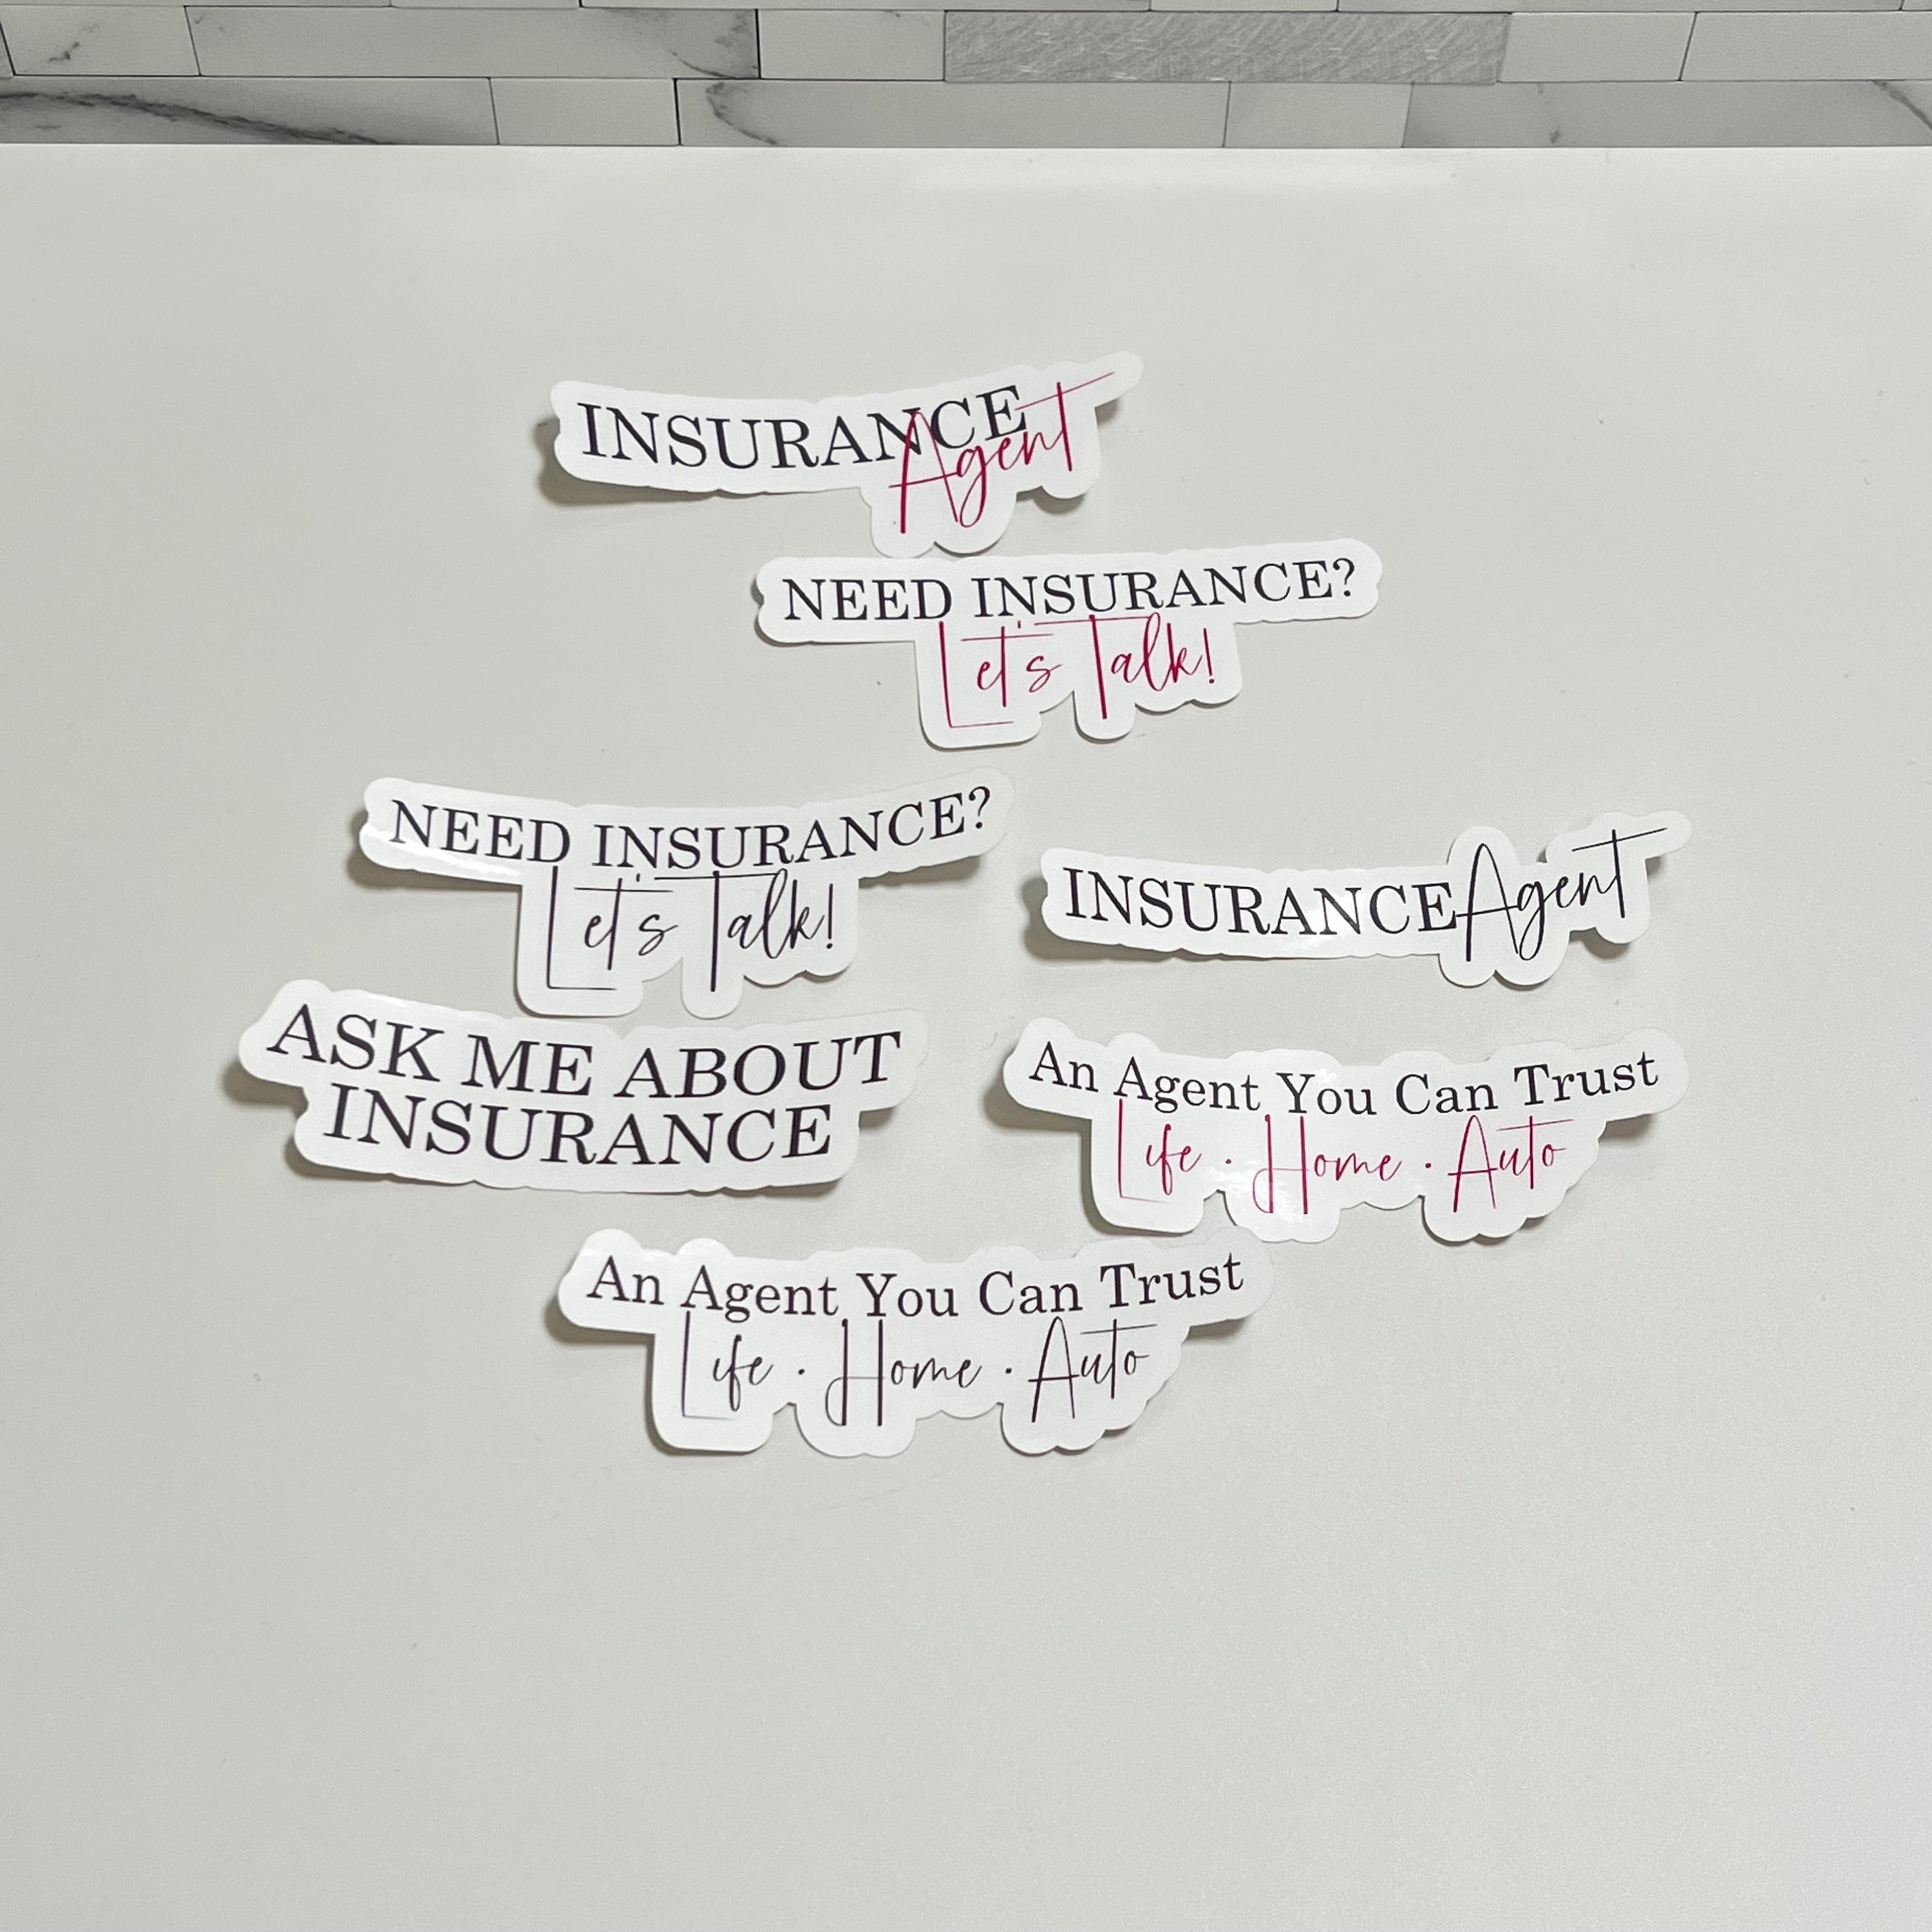 INSURANCE
Agent
NEED INSURANCE?
Let's Talk!
NEED INSURANCE?
Let's Talk!
INSURANCE Agent
ASK ME ABOUT
INSURANCE
An Agent You Can Trust
Life · Home · Auto
An Agent You Can Trust
Life · Home · Auto